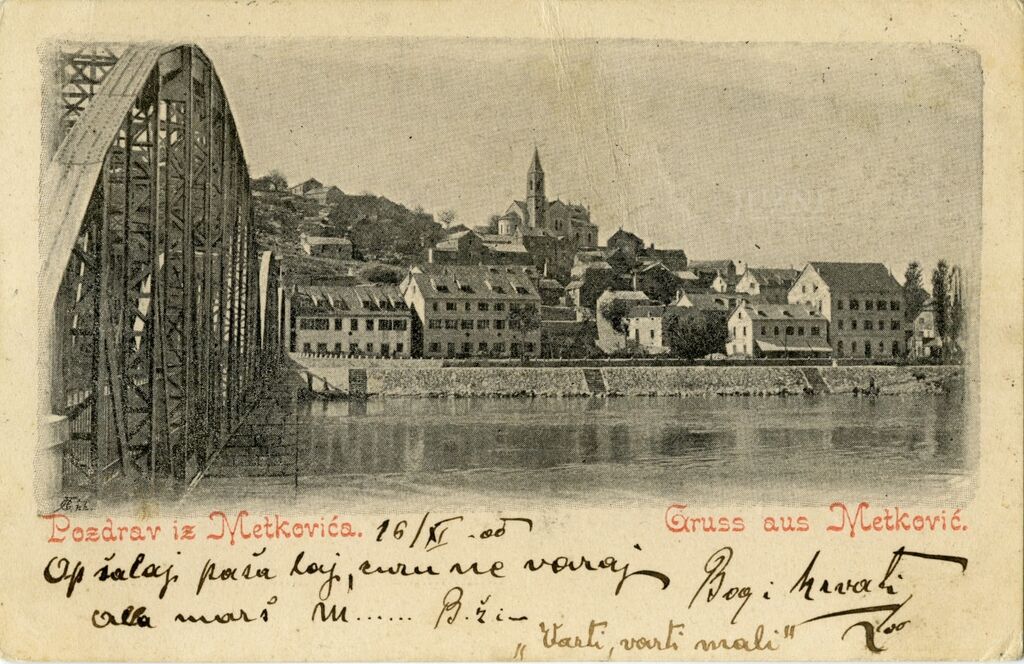 Pozdrav iz Metkovića. 16/XI 00 Gruss aus Metković.
Op šalaj paša laj, curu ne varaj
Bog i Hrvati
alla marš M...... B.ži
"Varti, varti mali"